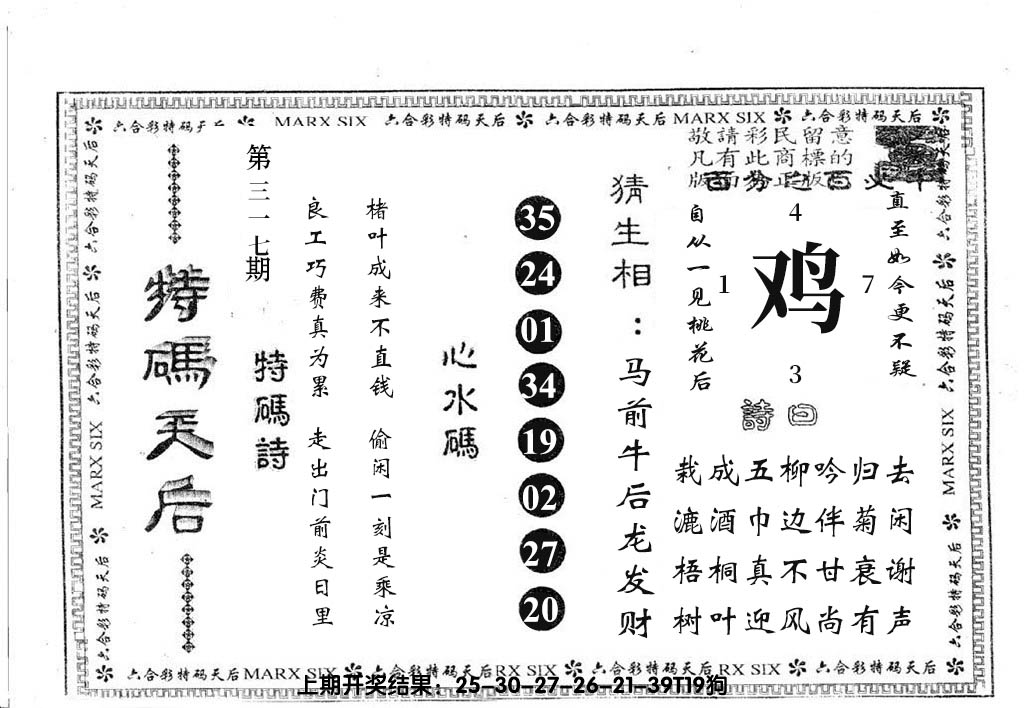 六合彩特码天后 MARX SIX 六合彩特码天后 六合彩特码天后 MARX SIX 六合彩特码天后
敬請彩民留意
凡有此商標的
直至如今更不疑
4
鸡
1
7
3
自从一见桃花后
詩曰
去闲谢声
归菊衰有
吟伴甘尚
柳边不风
五巾真迎
成酒桐叶
栽漉梧树
猜生相:马前牛后龙发财
35
24
01
34
19
02
27
20
心水碼
楮叶成来不直钱 偷闲一刻是乘凉
良工巧费真为累 走出门前炎日里
特碼詩
第三一七期
特碼天后
六合彩特码天后
MARX SIX
六合彩特码天后
六合彩特码天后
六合彩特码天后
MARX SIX
六合彩特码天后
六合彩特码天后 MARX SIX 六合彩特码天后 RX SIX 六合彩特码天后 RX SIX 六合彩特码天后
上期开奖结果：25-30-27-26-21-39T19狗